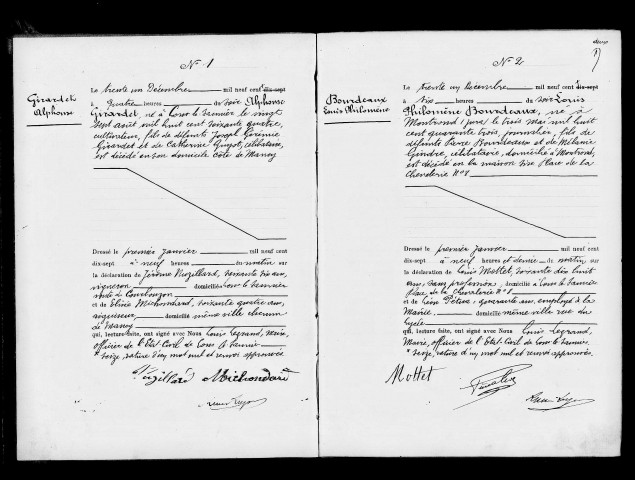 N° 1
Girardet
Alphonse
Le trente un Décembre mil neuf cent dix-sept
à quatre heures du soir Alphonse
Girardet, né à Lons le Saunier le vingt
sept août mil huit cent soixante quatre,
cultivateur, fils de défunts Joseph Jérémie
Girardet et de Catherine Guyot, célibataire,
est décédé en son domicile Côte de Mancy
Dressé le premier Janvier mil neuf cent
dix-sept à neuf heures du matin sur
la déclaration de Jérôme Vuzillard, soixante dix ans,
vigneron domicilié à Lons le Saunier
route de Courbouzon
et de Elisée Michondard, soixante quatre ans,
domicilié même ville chemin
de Mancy
qui, lecture faite, ont signé avec Nous Louis Legrand, Maire,
officier de l'Etat Civil de Lons le Saunier
* seize, rature d'un mot nul et renvoi approuvés.
Vuzillard Michondard
N° 2
Bourdeaux
Louis Philomène
Le trente un Décembre mil neuf cent dix-sept
à six heures du soir Louis
Philomène Bourdeaux, né à
Montrond Jura le trois mai mil huit
cent quarante trois, journalier, fils de
défunts Pierre Bourdeaux et de Mélanie
Gindre, célibataire, domicilié à Montrond,
est décédé en la maison sise Place de la
Chevalerie N° 8
Dressé le premier Janvier mil neuf cent
dix-sept à neuf heures et demie du matin sur
la déclaration de Louis Mottet, soixante dix huit
ans, sans profession, domicilié à Lons le Saunier
Place de la Chevalerie N° 8
et de Léon Pétrex, quarante ans, employé à la
Mairie domicilié même ville rue du
Lycée
qui, lecture faite, ont signé avec Nous Louis Legrand,
Maire, officier de l'Etat Civil de Lons le Saunier.
* seize, rature d'un mot nul et renvoi approuvés.
Mottet